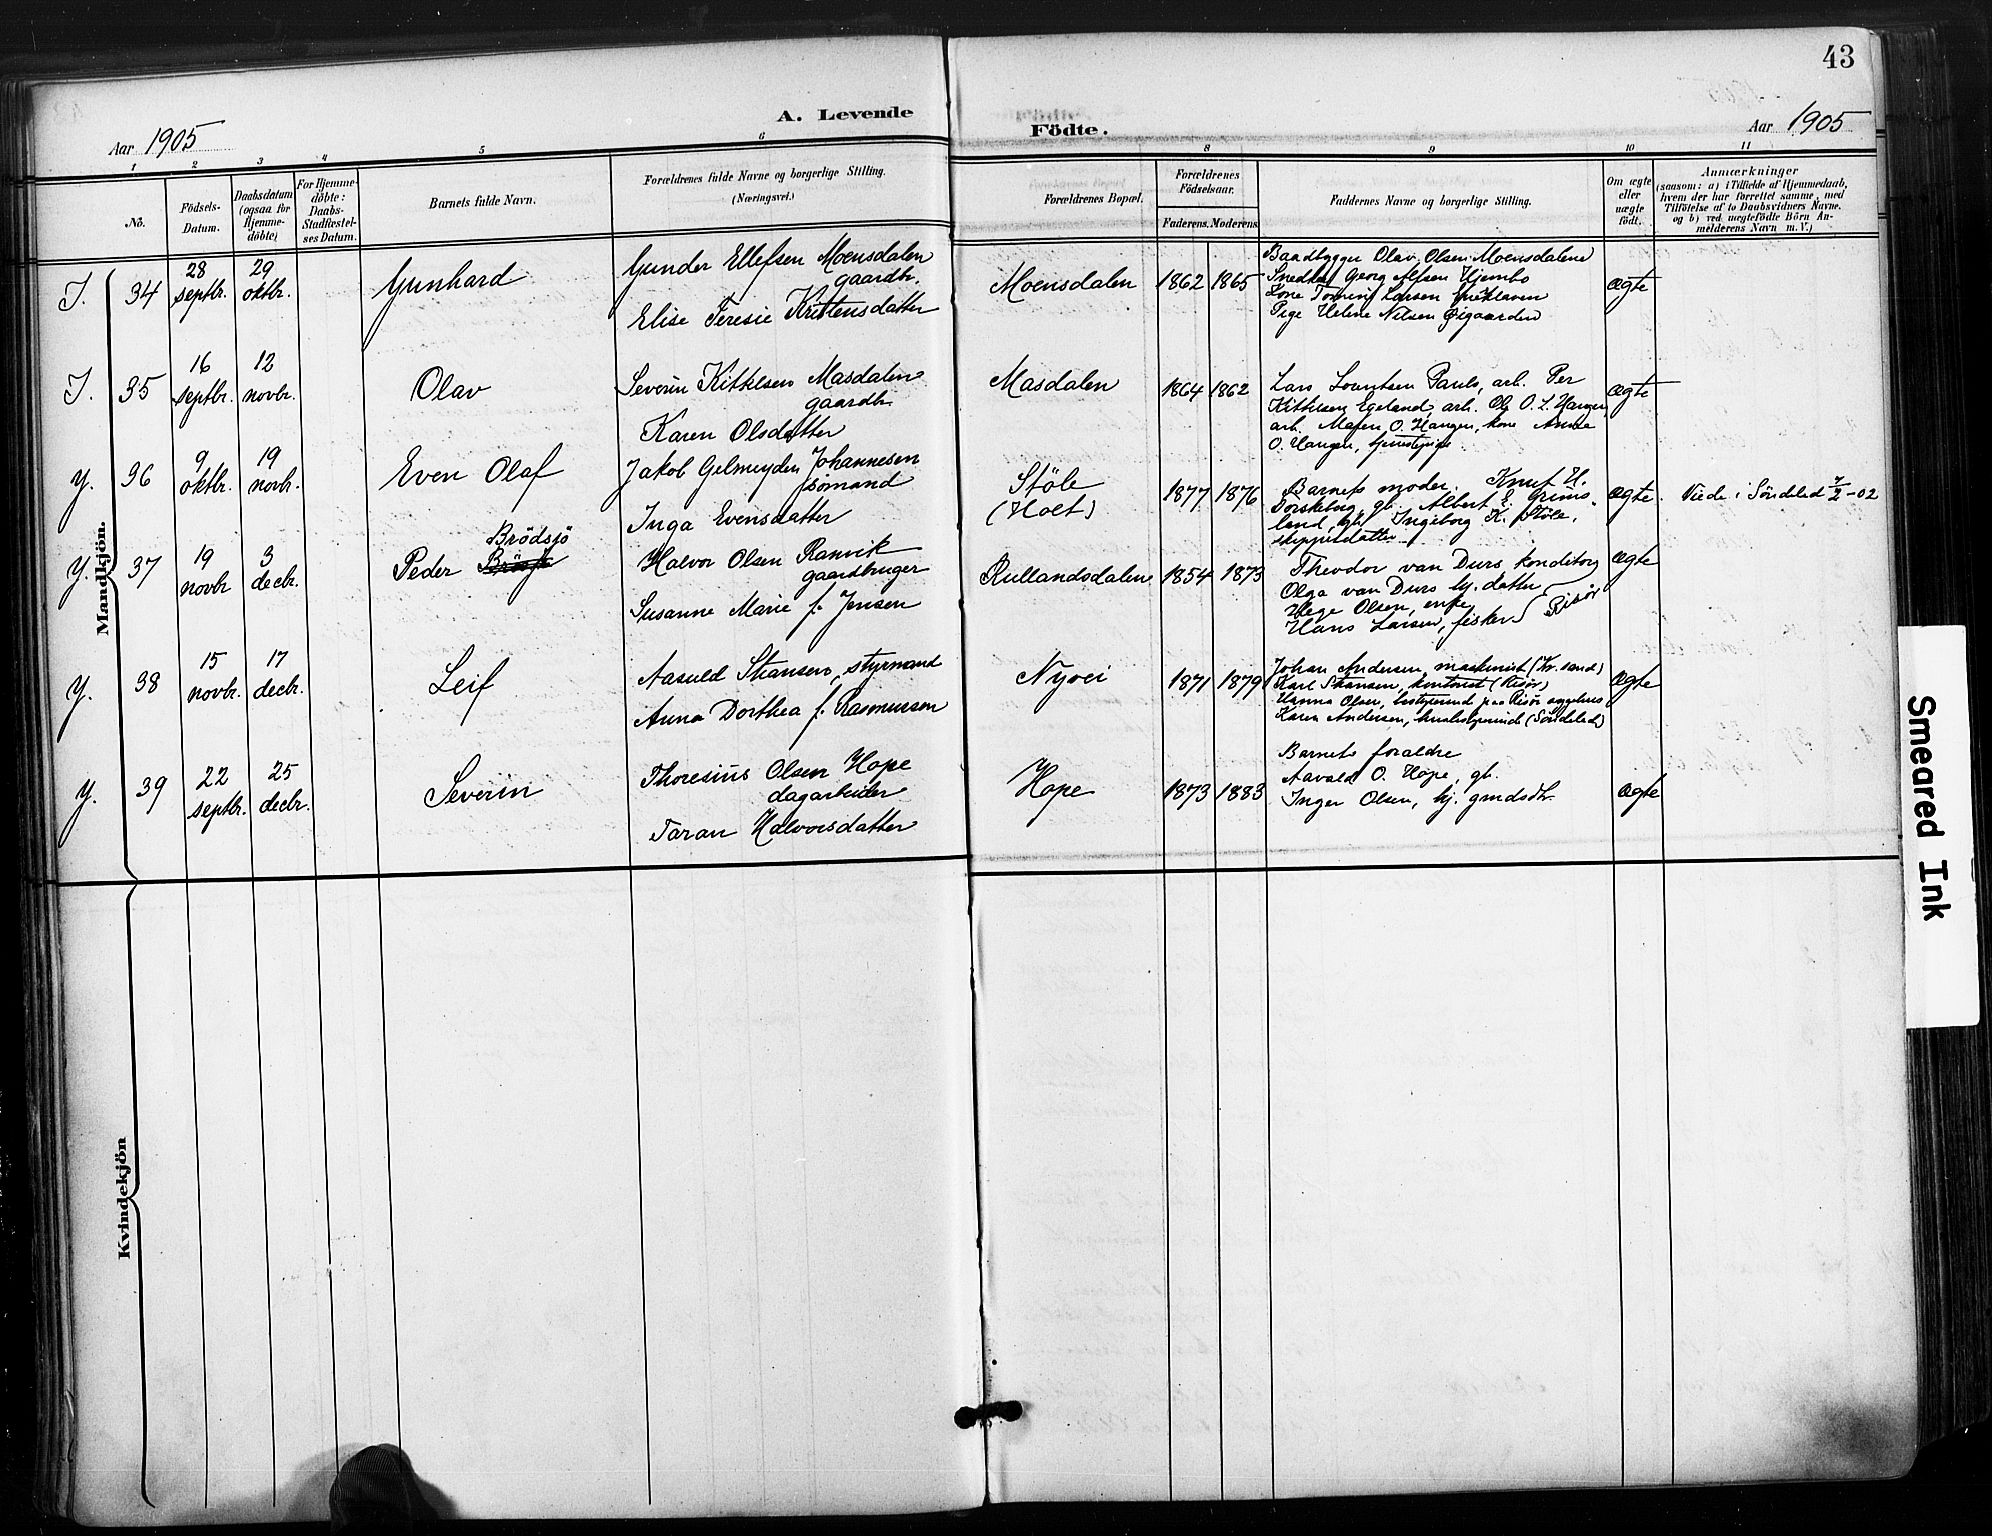 43
A. Levende
Födte.
Aar 1905
Aar 1905
1 2 3 4 5 6
8 9 10 11
No.
Födsels-
Datum.
Daabsdatum
(ogsaa for
Hjemme-
döbte)
For Hjemme-
döbte:
Daabs-
Stadfæstel-
ses Datum.
Barnets fulde Navn.
Forældrenes fulde Navne og borgerlige Stilling.
(Næringsvei.)
Forældrenes Bopæl.
Forældrenes
Födselsaar.
Faderens. Moderens.
Faddernes Navne og borgerlige Stilling.
Om ægte
eller
uægte
födt.
Anmærkninger
(saasom: a) i Tilfælde af Hjemmedaab,
hvem der har forrettet samme, med
Tilföielse af to Daabsvidners Navne.
og b) ved uægtefödte Börn An-
melderens Navn m. V.)
Mandkjön.
I. 34
28
septbr.
29
oktbr.
Gunhard
Gunder Ellefsen Moensdalen
gaardbr.
Elise Teresie Kristensdatter
Moensdalen
1862 1865
Baadbygger Olav Olsen Moensdalene
Snedker Georg Alfsen Hjembo
Kone Tomine Larsen
Pige Helene Nilsen Øigaarden
ægte
I. 35
16
septbr.
12
novbr.
Olav
Severin Kittelsen Masdalen
gaardbr.
Karen Olsdatter
Masdalen
1864 1862
Lars Lourntsen Pauls, arb. Per
Kittelsen Egeland, arb. Ole O. L. Hangen,
arb. Maren O. Hangen, kone Anne
O. Hangen, tjenestepige
ægte
Y. 36
9
oktbr.
19
novbr.
Even Olaf
Jakob Gelmeyden Johannesen
sömand
Inga Evensdatter
Stöle
(Holt)
1877 1876
Barnets moder. Knut H.
Torskeberg, gb. Albert E. Grims-
land, gb. Ingeborg K. Stöle,
skippersdatter
ægte.
Viede i Söndeled 7/2 -02
Y. 37
19
novbr
3
decbr.
Brödsjö
Peder
Halvor Olsen Ranvik
gaardbruger
Susanne Marie f. Jensen
Rullandsdalen
1854 1873
Theodor van Durs, konditor
Olga van Durs hj. datter
Hege Olsen, enke
Hans Larsen, fisker
Risör
ægte
Y. 38
15
novbr.
17
decbr.
Leif
Aasuld Stiansen, styrmand
Anna Dorthea f. Rasmussen
Nyvei
1871 1879
Johan Andersen, maskinist (Kr.sand)
Karl Stiansen, kontorist (Risör)
Hanna Olsen, bestyrerinde paa Risör sygehus
Karen Andersen, (Söndeled)
ægte
Y. 39
22
septbr.
25
decbr.
Severin
Thoresius Olsen Hope
dagarbeider
Taran Halvorsdatter
Hope
1873 1883
Barnets foraldre
Aavald O. Hope, gb.
Inger Olsen, hj. gmdsdtr.
ægte
Kvindekjön
Smeared Ink